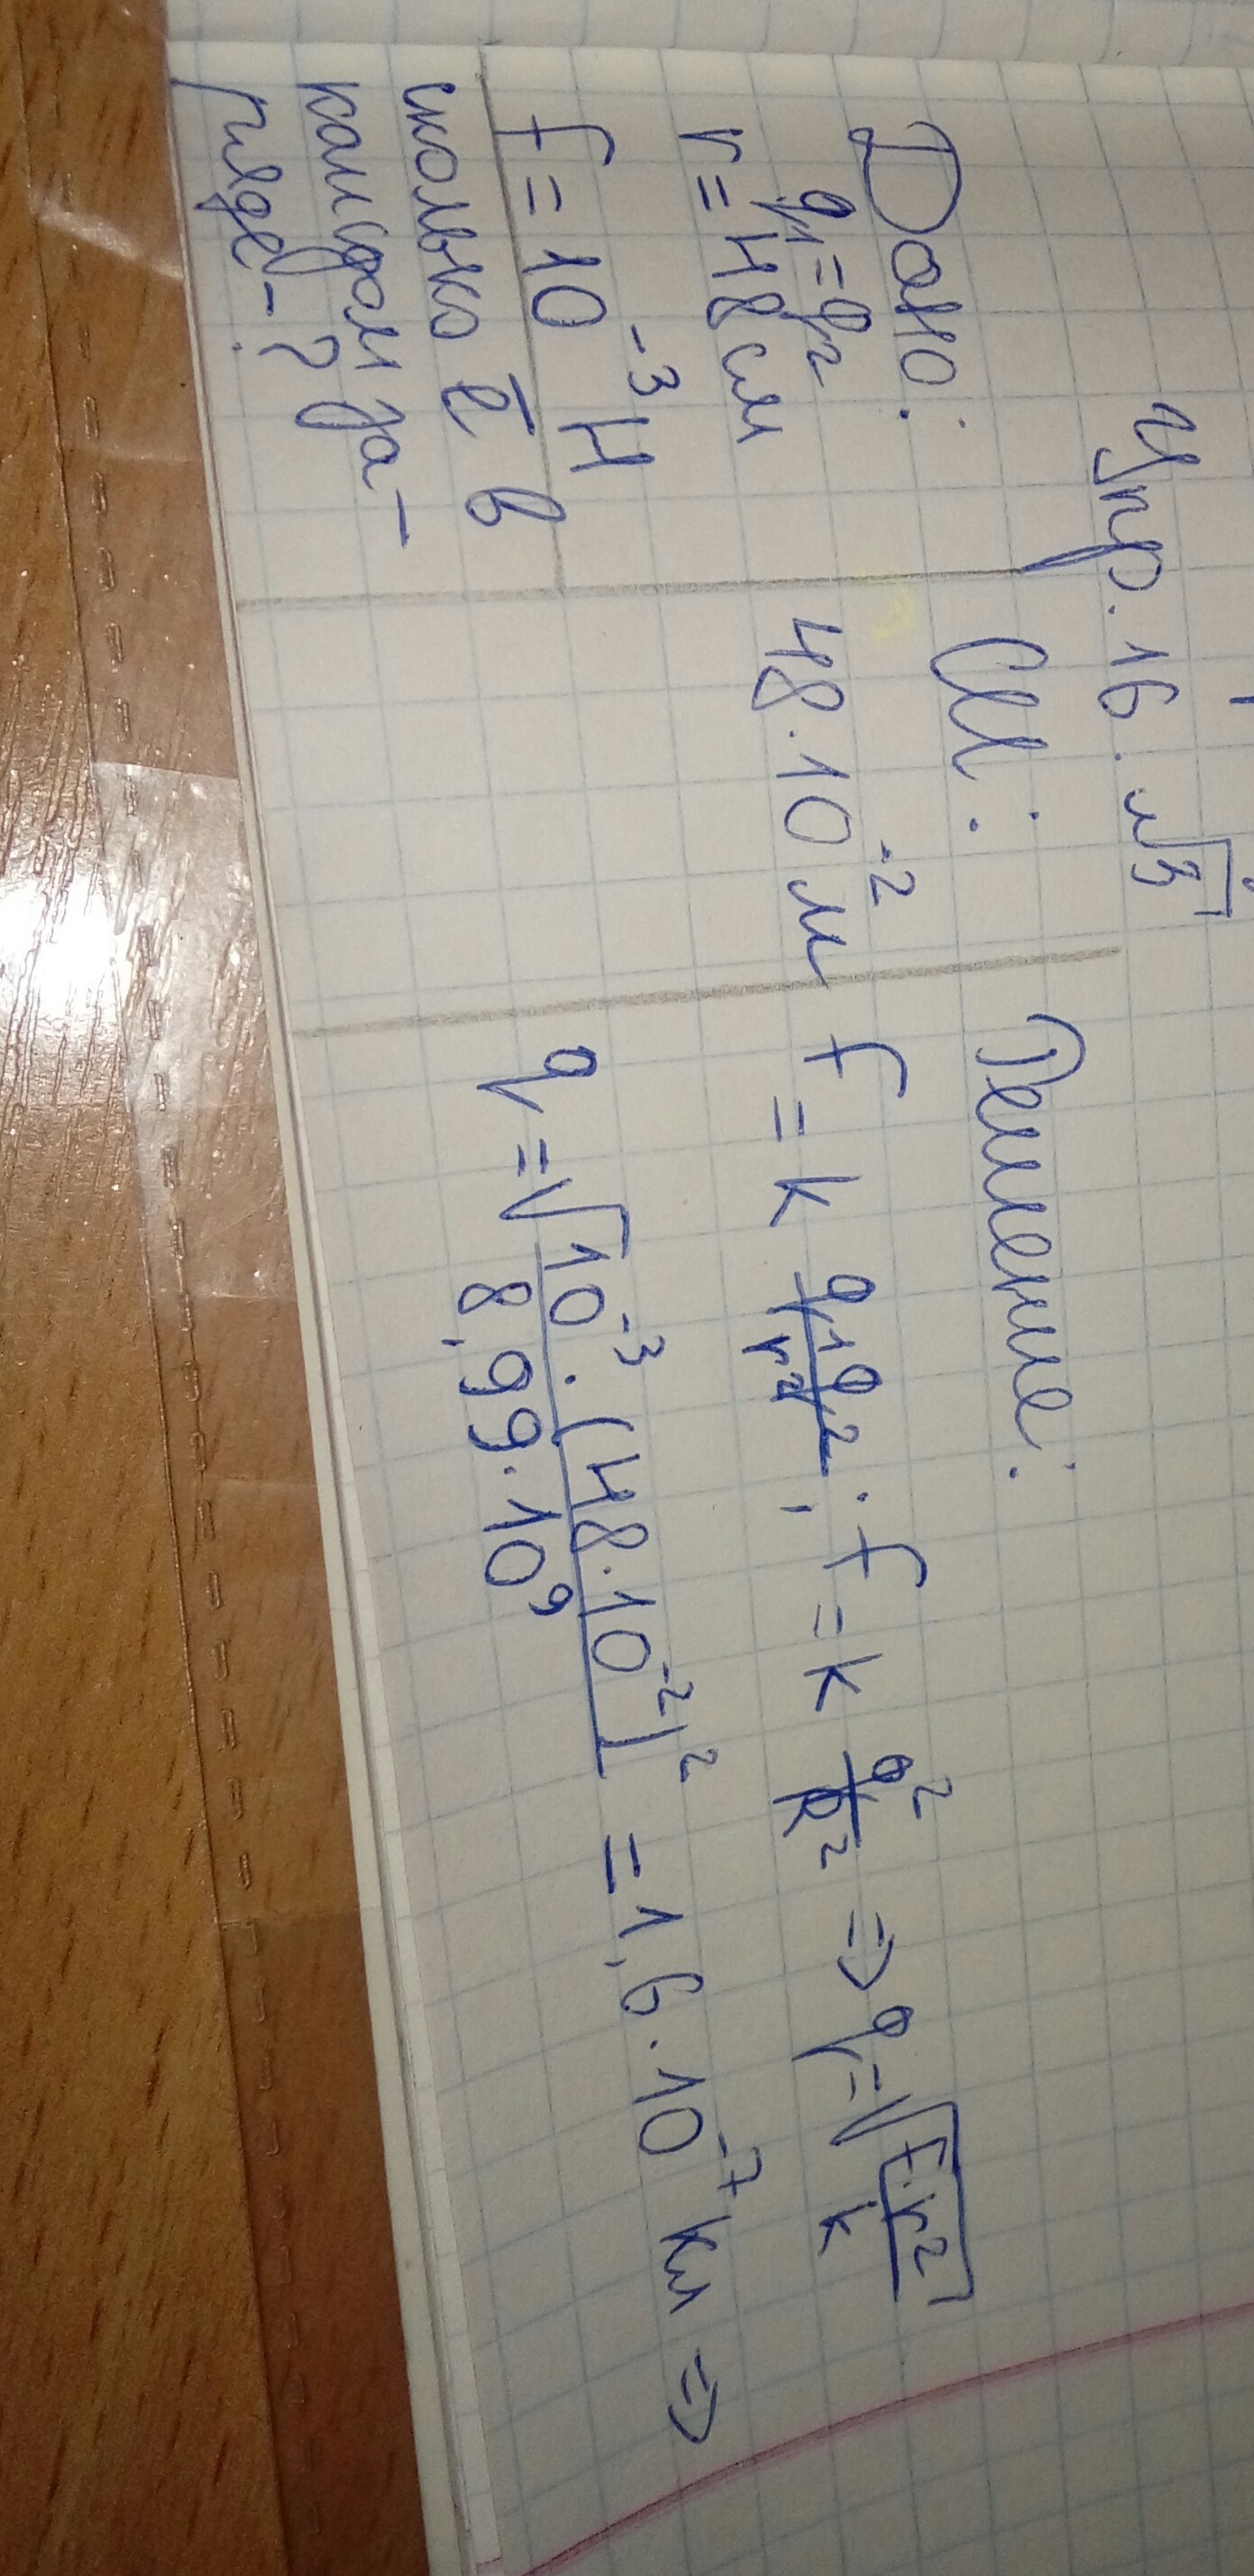 Упр. 16. √3
Дано:
q1 = q2
r = 48 см
F = 10⁻³ Н
сколько ē в
каждом за-
ряде - ?
СИ:
48·10⁻² м
Решение:
F = k q1q2/r²; F = k q²/r² => q = √(F·r²/k)
q = √(10⁻³·(48·10⁻²)²/8,99·10⁹) = 1,6·10⁻⁷ Кл =>